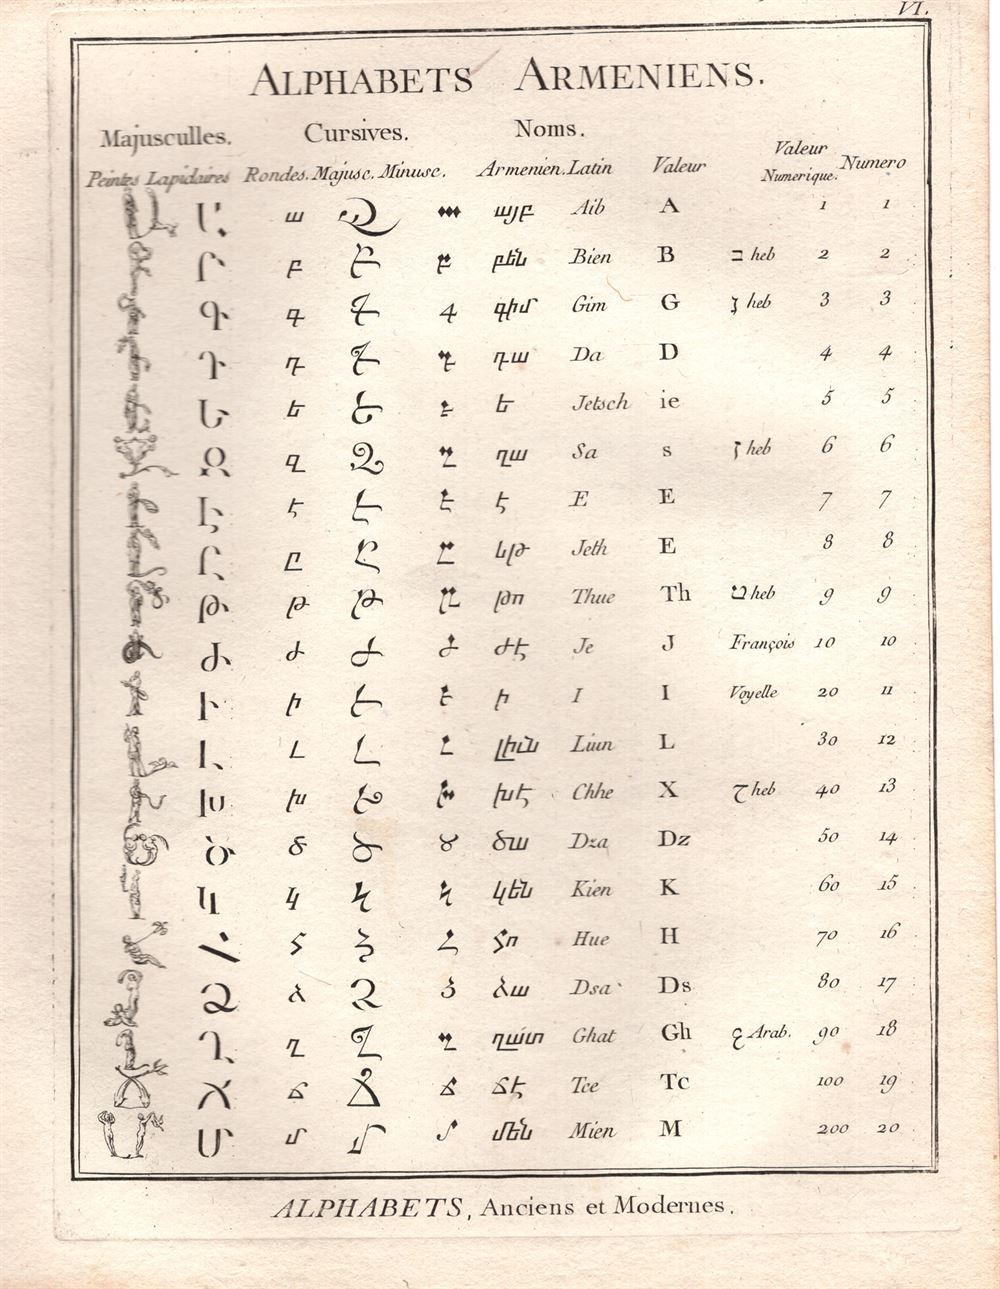 VI.
ALPHABETS ARMENIENS.
Majusculles. Cursives. Noms.
Peintes Lapidaires Rondes. Majusc. Minusc. Armenien. Latin Valeur Valeur Numerique. Numero
Ա ա այբ Aib A 1 1
Բ բ բեն Bien B ב heb 2 2
Գ գ գիմ Gim G ג heb 3 3
Դ դ դա Da D 4 4
Ե ե ե Jetsch ie 5 5
Զ զ ղա Sa s ז heb 6 6
Է է է E E 7 7
Ը ը Jeth E 8 8
Թ թ թո Thue Th ט heb 9 9
Ժ ժ ժէ Je J François 10 10
Ի ի ի I I Voyelle 20 11
Լ լ լիւն Liun L 30 12
Խ խ խէ Chhe X ח heb 40 13
Ծ ծ ծա Dza Dz 50 14
Կ կ կեն Kien K 60 15
Հ հ հո Hue H 70 16
Ձ ձ ձա Dsa Ds 80 17
Ղ ղ ղատ Ghat Gh ع Arab. 90 18
Ճ ճ ճէ Tce Tc 100 19
Մ մ մեն Mien M 200 20
ALPHABETS, Anciens et Modernes.